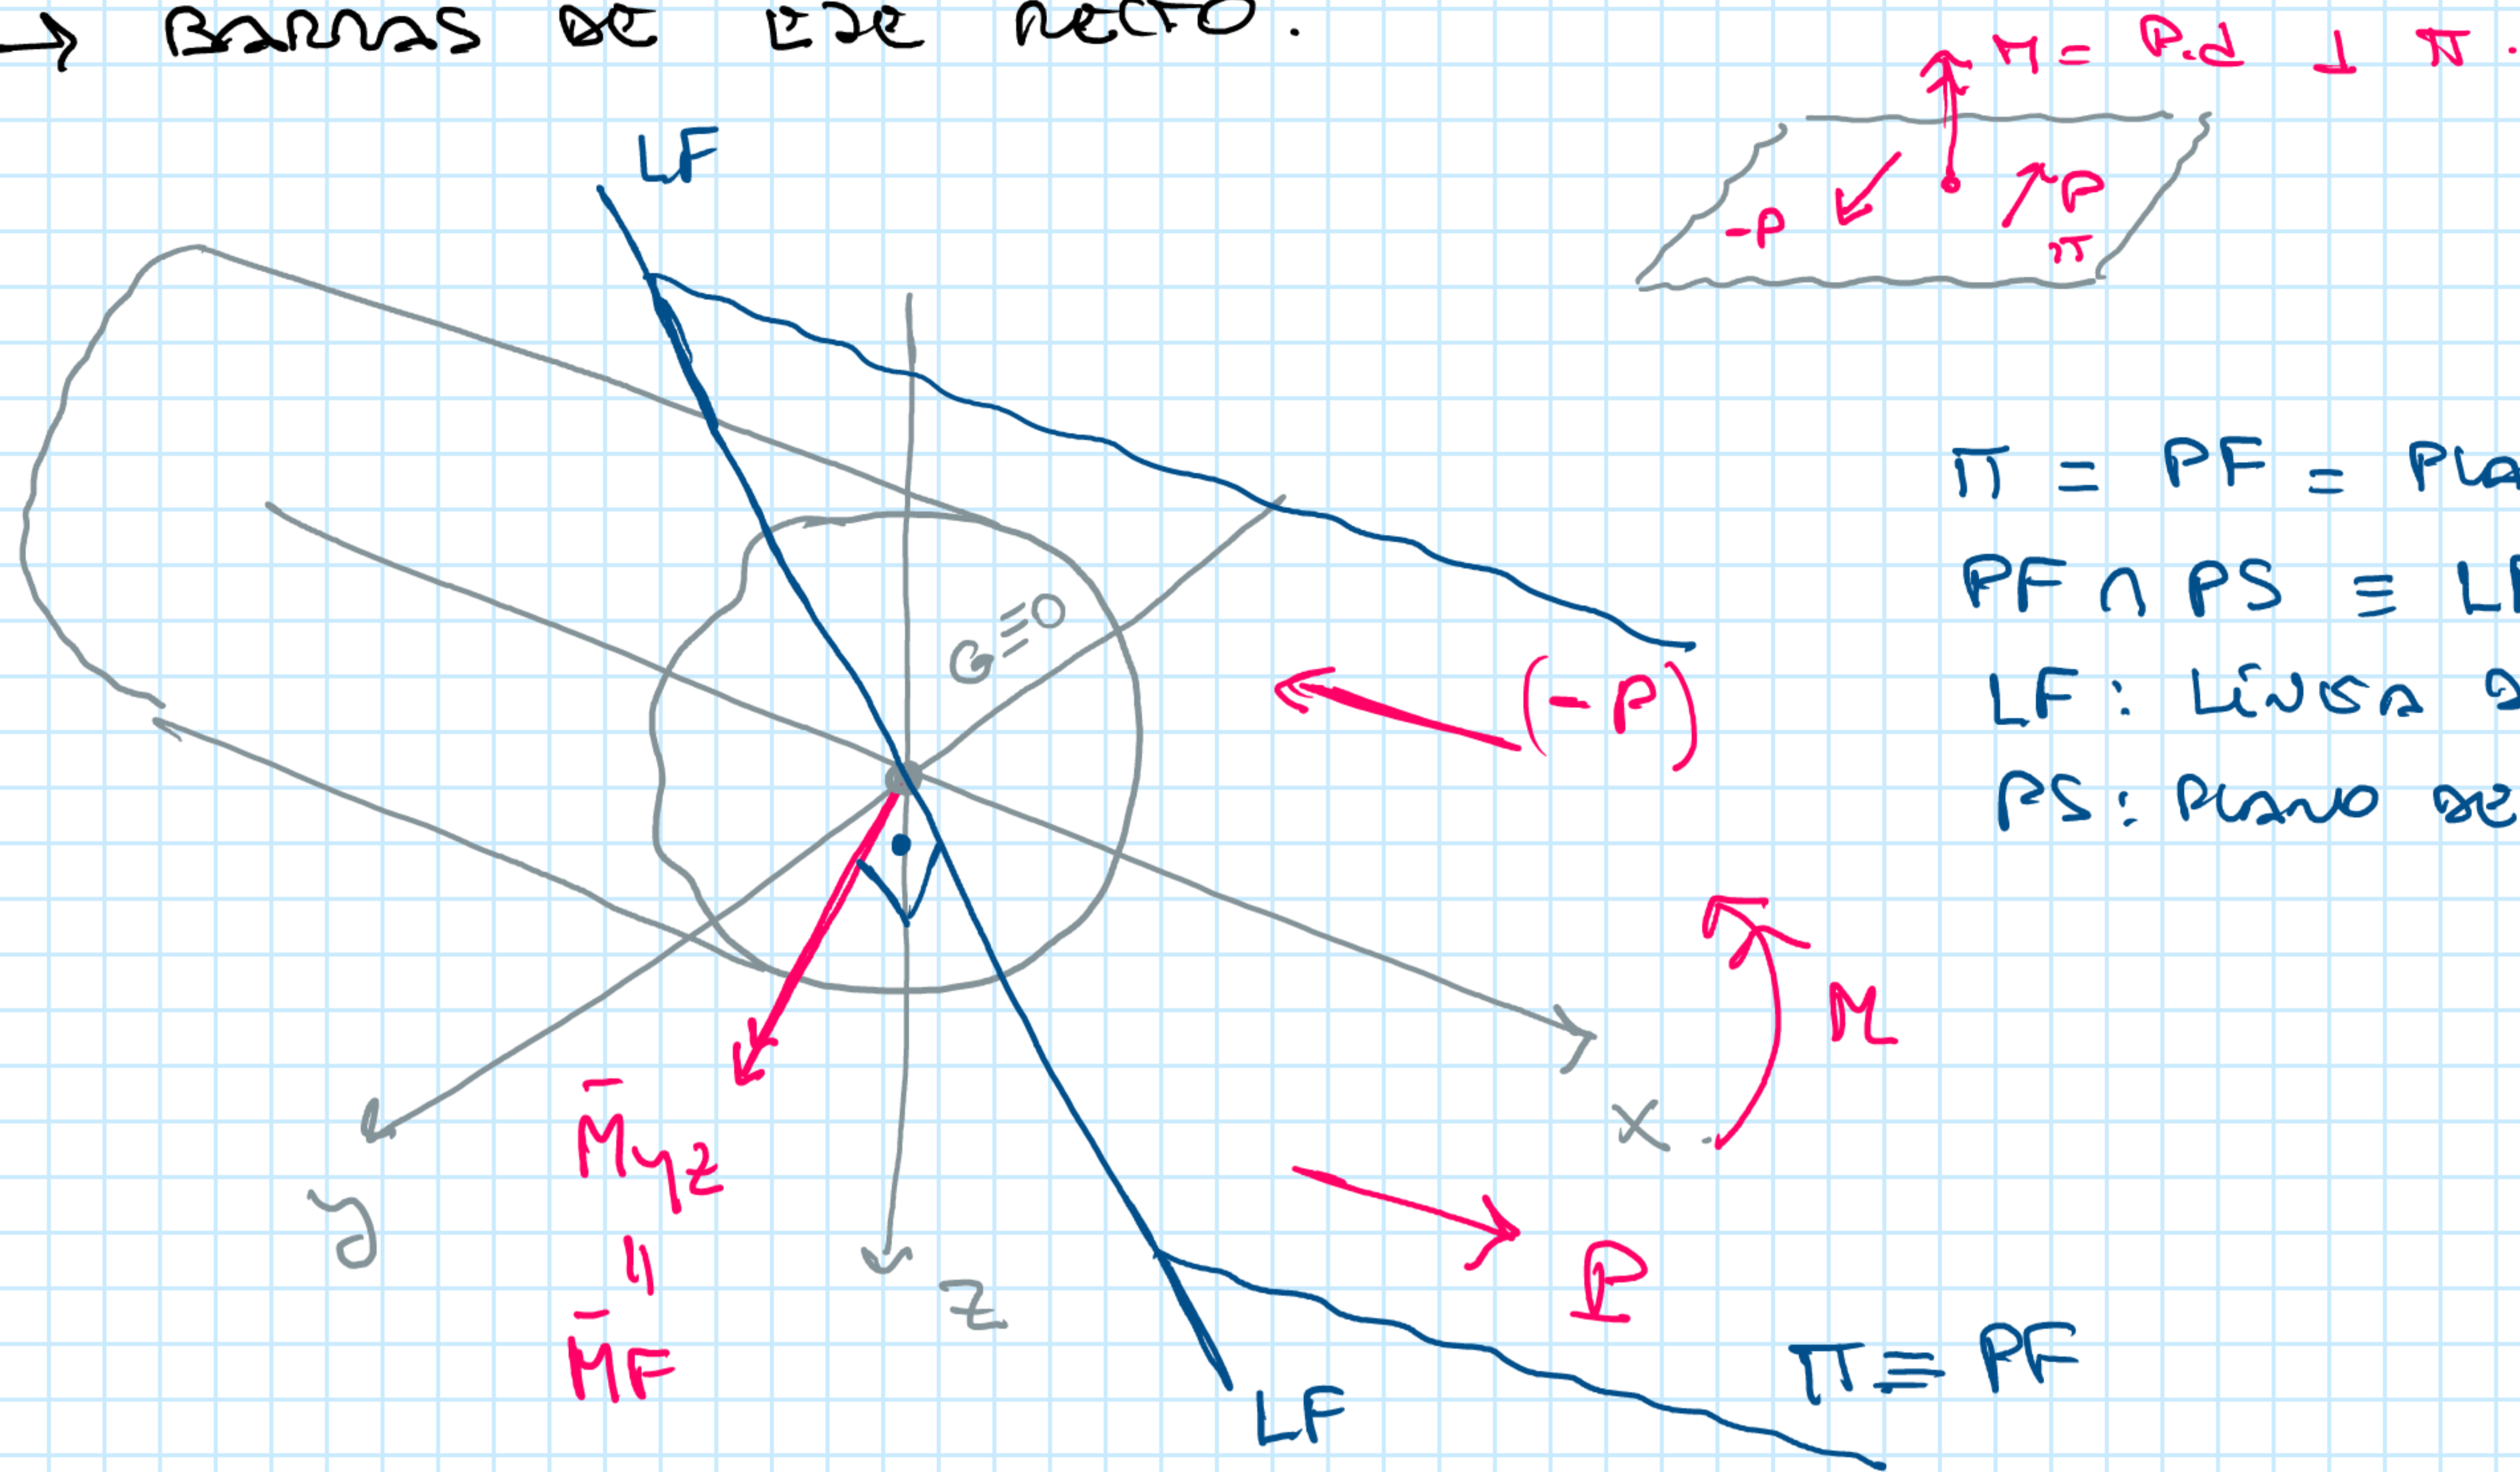 → BARRAS DE EJE RECTO.
M = P.d ⊥ π.
-P
P
π
LF
π = PF = Pla
PF ∩ PS ≡ LF
LF: LíNEA D
PS: PLANO DE
G≡O
(-P)
M
x
y
z
M̄yz
=
M̄F
P
π ≡ PF
LF